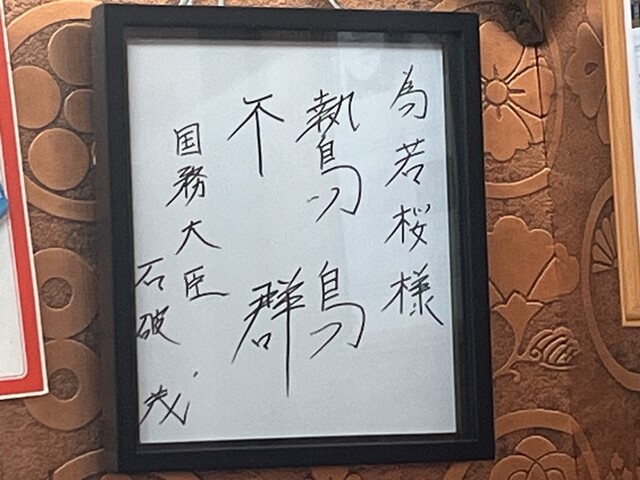 為若桜様
鷙鳥
不群
国務大臣
石破茂